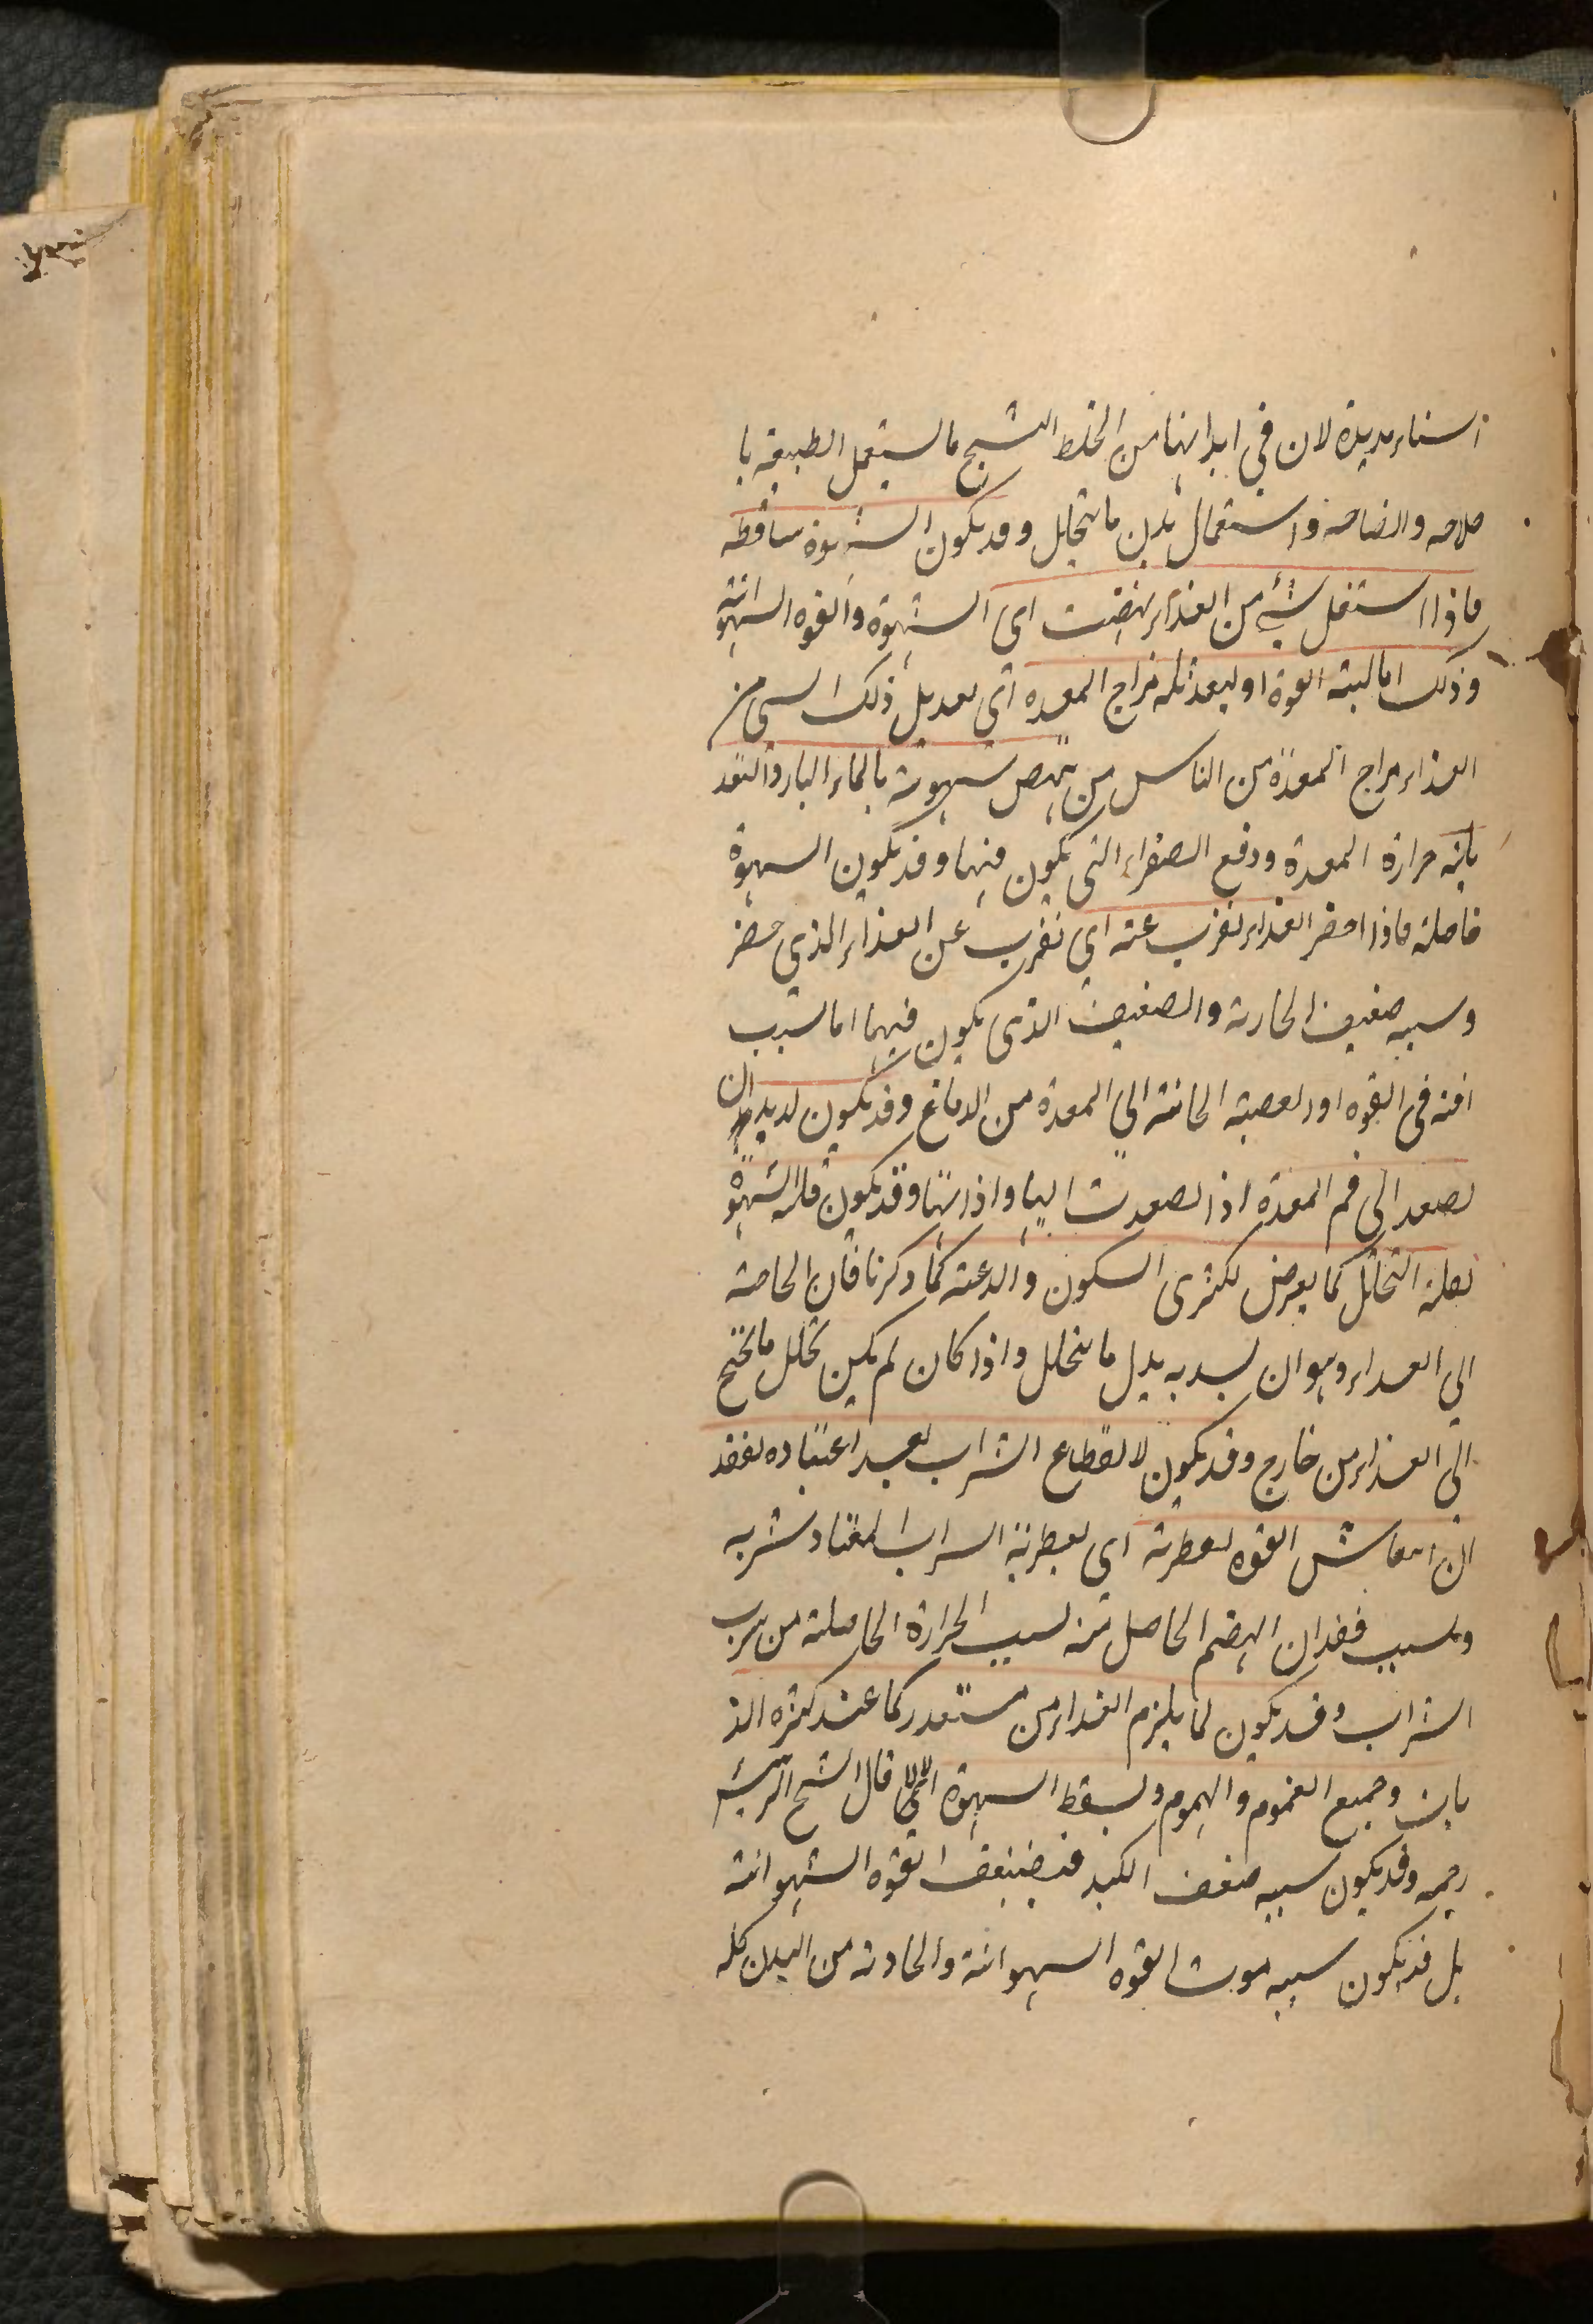 مديدة لان في ابدانها من الخلط الشبح ما لستعمل الطبيعة با
صلاحه وانضاجه واستعمال بدل ما يتحلل وقد يكون الشهوة ساقطة
فاذا استعمل شيء من الغذاء نهضت اى الشهوة والقوه الشهوانية
وذلك اما لتنبه القوة او لتعديله مزاج المعده اى تعديل ذلك الشي من
الغذاء مزاج المعدة من الناس من ينهض شهوته بالماء البارد لتعد
يله حرارة المعدة ودفع الصفراء التى يكون فيها وقد يكون الشهوة
حاصلة فاذا حضر الغذاء نفرت عنه اي نفرت عن الغذاء الذي حضر
وسببه ضعيف الجاذبة والضعيف الذى يكون فيها اما لسبب
افة فى القوه او لعصبة الجائية الى المعدة من الدماغ وقد يكون لديدان
تصعد الى فم المعدة اذا تصعدت اليها واذتها وقد يكون قلة الشهوة
لقلة التحلل كما يعرض لكثرى السكون والدعة كما ذكرنا فان الحاجة
الى الغذاء وهو ان يسد به بدل ما يتحلل واذا كان لم يكن تحلل ما يحتج
الى الغذاء من خارج وقد يكون لانقطاع الشراب بعيد اعتياده لفقد
ان انتعاش القوه لعطريته اى لعطرية الشراب المعتاد شربه
وبسبب فقدان الهضم الحاصل منه لسبب الحرارة الحاصلة من شرب
الشراب وقد يكون لما يلزم الغذاء من مستقذر كما عند كثرة الذ
باب وجميع الغموم والهموم ولسقط الشهوة قال الشيخ الرئيس
رحمه وقد يكون سببه ضعف الكبد فيضعف القوه الشهوانية
بل قد يكون سببه موت القوه الشهوانية والجاذبة من البدن كله